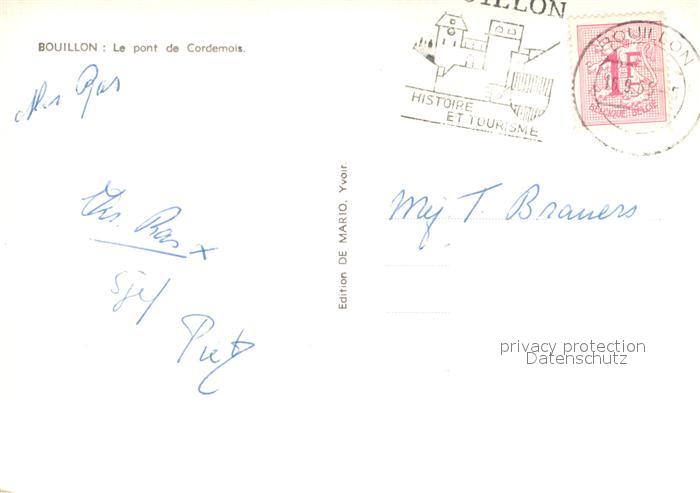 BOUILLON : Le pont de Cordemois.
BOUILLON
HISTOIRE
ET TOURISME
BOUILLON
1F
BELGIQUE-BELGIE
Ras
Ras
Sjef
Piet
Edition DE MARIO, Yvoir.
Mej T. Brauers
privacy protection
Datenschutz